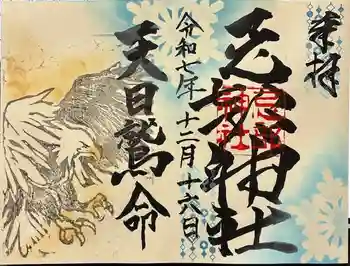 奉拝
忌部神社
忌部
神社
令和七年十二月十六日
天日鷲命